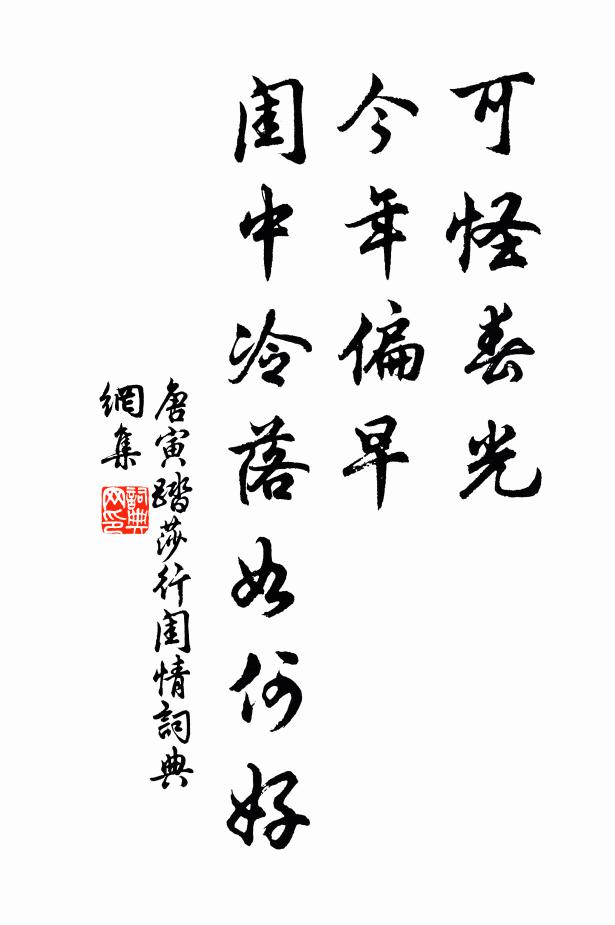 可怪春光
今年偏早
闺中冷落如何好
唐寅踏莎行闺情詞典
網集
詞典
网印